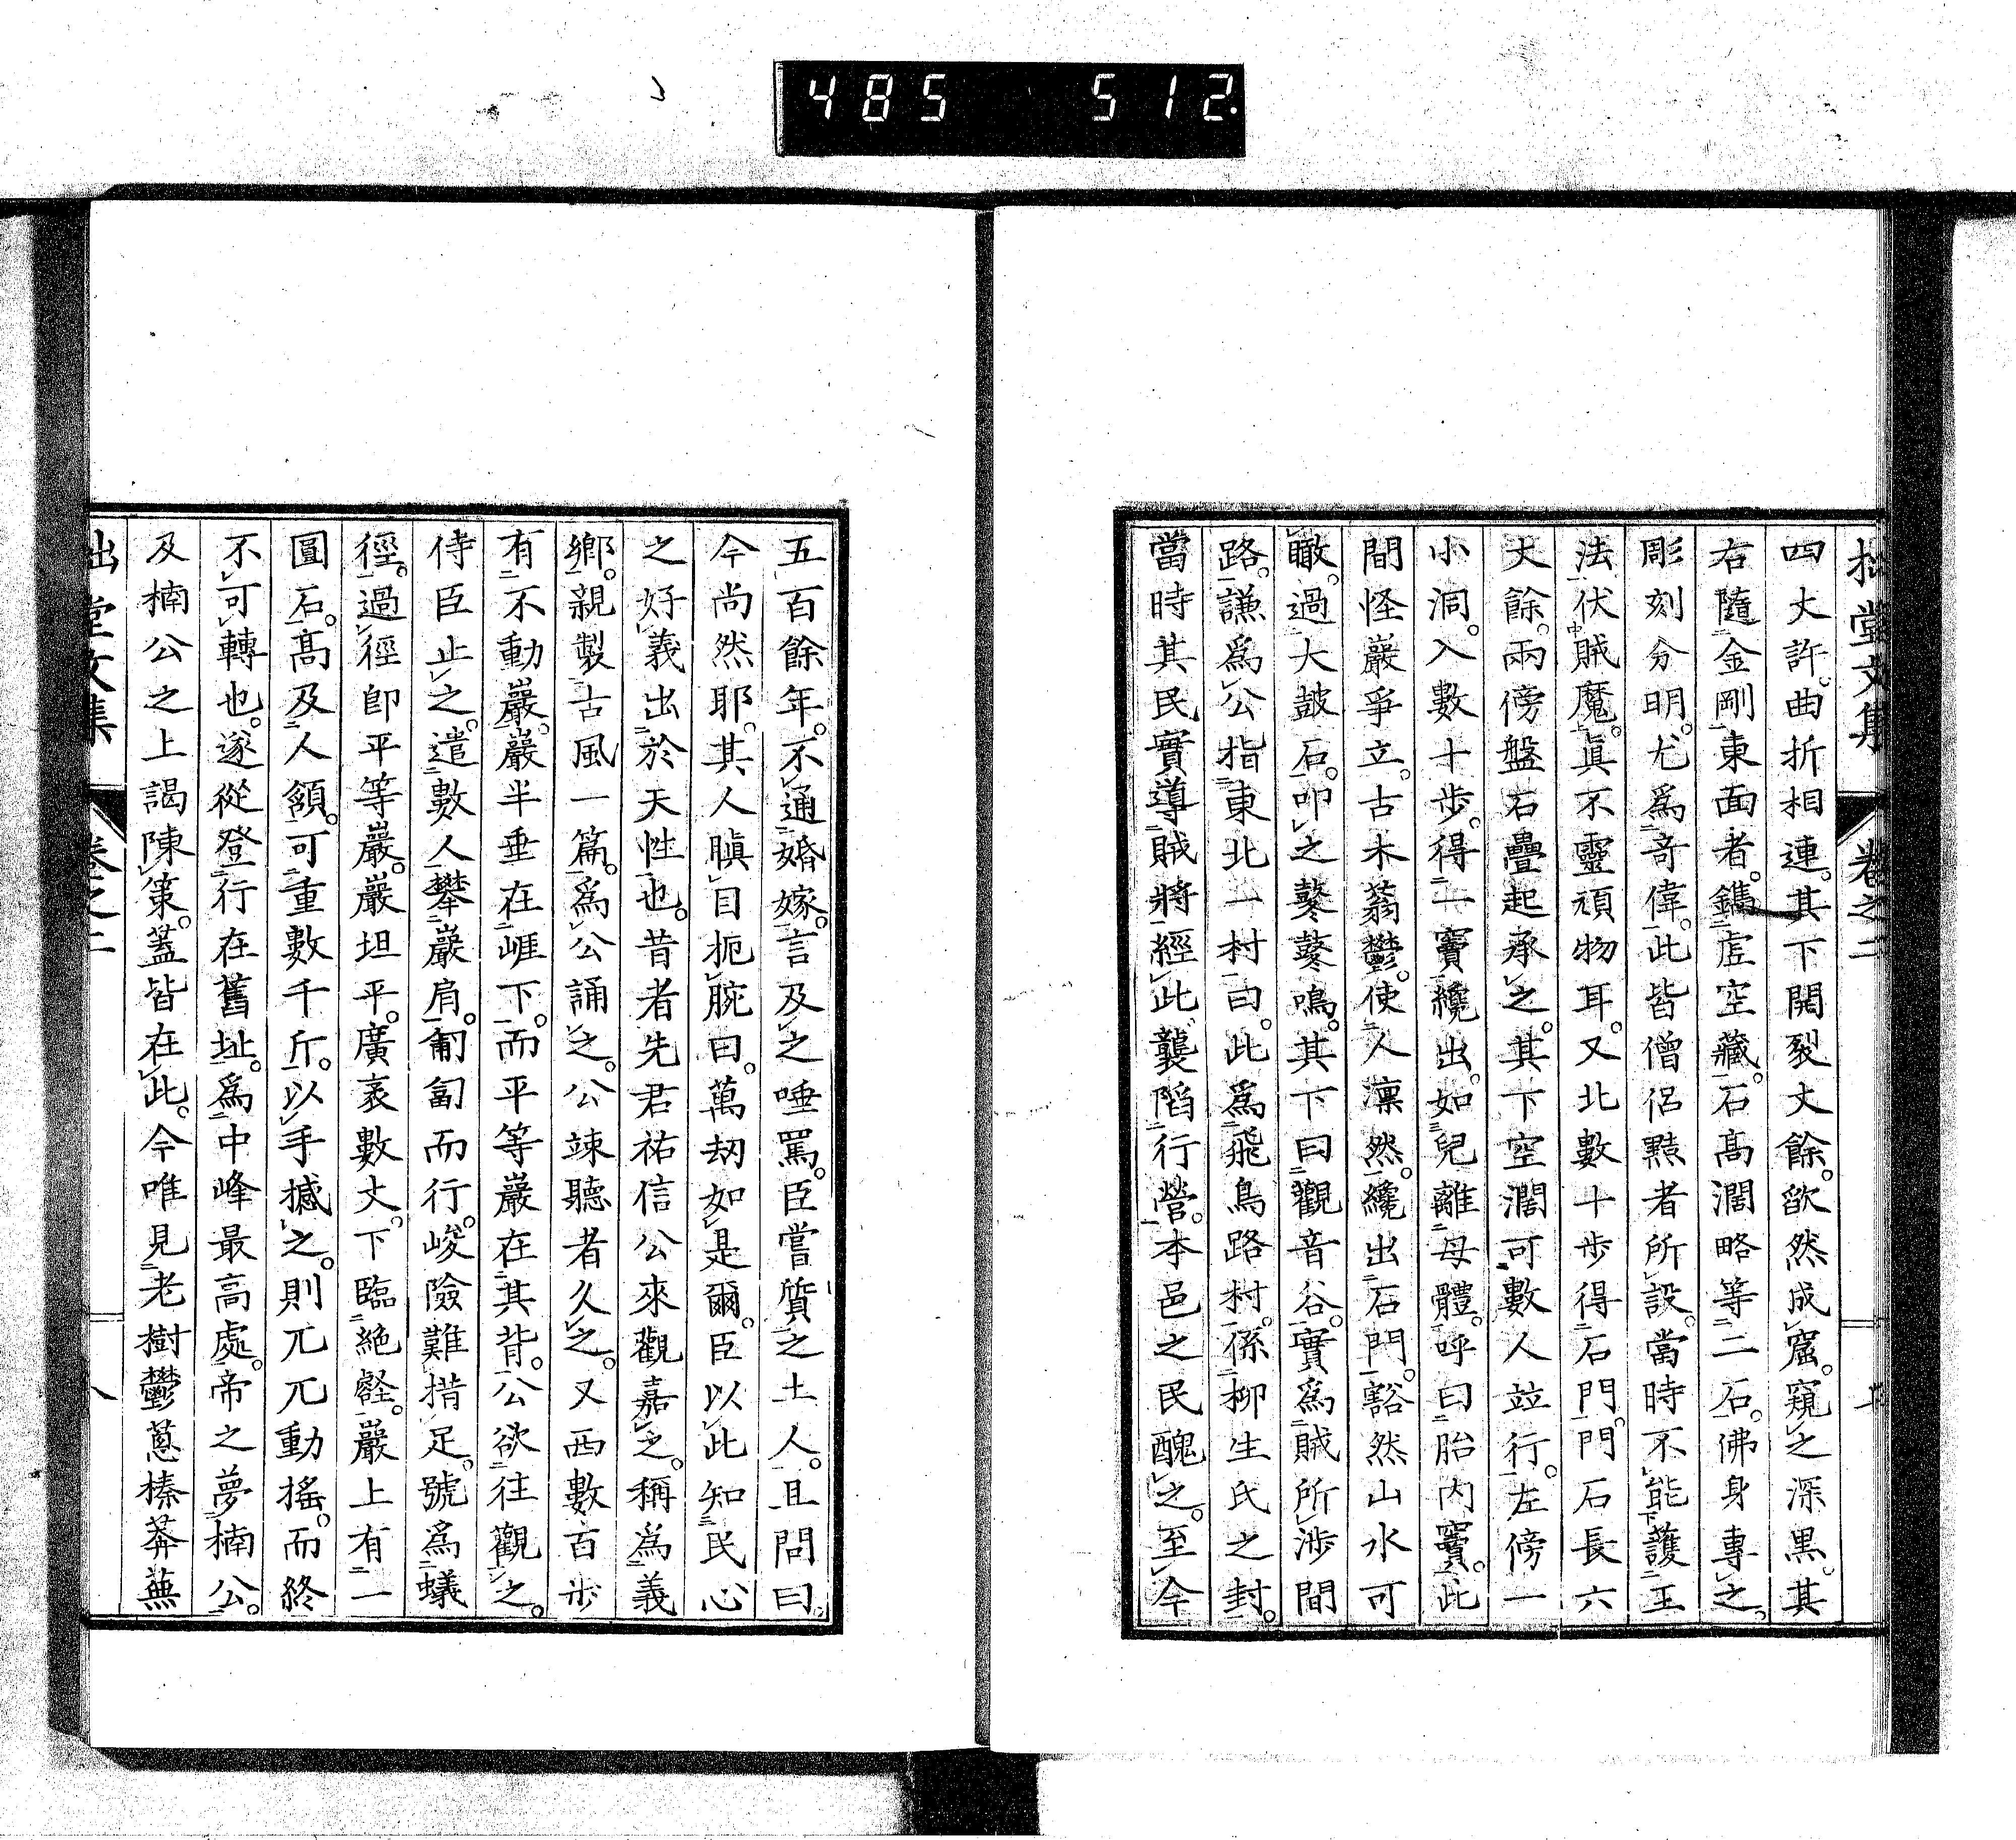 485 512.
拙堂文集 卷之二
四丈許。曲折相連。其下開裂丈餘。欿然成窟。窺之深黑。其
右隨金剛東面者。鐫虛空藏。石高濶略等二石。佛身專之。
彫刻分明。尤爲奇偉。此皆僧侶黠者所設。當時不能護王
法伏賊魔。眞不靈頑物耳。又北數十步得石門。門石長六
丈餘。兩傍盤石疊起承之。其下空濶可數人竝行。左傍一
小洞。入數十步。得一竇纔出。如兒離母體。呼曰胎内竇。此
間怪巖爭立。古木蓊鬱。使人凜然。纔出石門。豁然山水可
瞰。過大皷石。叩之鼕鼕鳴。其下曰觀音谷。實爲賊所渉間
路。謙爲公指東北一村曰。此爲飛鳥路村。係柳生氏之封。
當時其民實導賊將經此襲陷行營。本邑之民醜之。至今
五百餘年。不通婚嫁。言及之唾罵。臣嘗質之土人。且問曰。
今尚然耶。其人瞋目扼腕曰。萬刧如是爾。臣以此知民心
之好義出於天性也。昔者先君祐信公來觀嘉之。稱爲義
鄉。親製古風一篇。爲公誦之。公竦聽者久之。又西數百步
有不動巖。巖半垂在崕下。而平等巖在其背。公欲往觀之。
侍臣止之。遣數人攀巖肩。匍匐而行。峻險難措足。號爲蟻
徑。過徑卽平等巖。巖坦平。廣袤數丈。下臨絶壑。巖上有一
圓石。高及人頷。可重數千斤。以手撼之。則兀兀動搖。而終
不可轉也。遂從登行在舊址。爲中峰最高處。帝之夢楠公。
及楠公之上謁陳策。蓋皆在此。今唯見老樹鬱蔥榛莽蕪
拙堂文集 卷之二 八